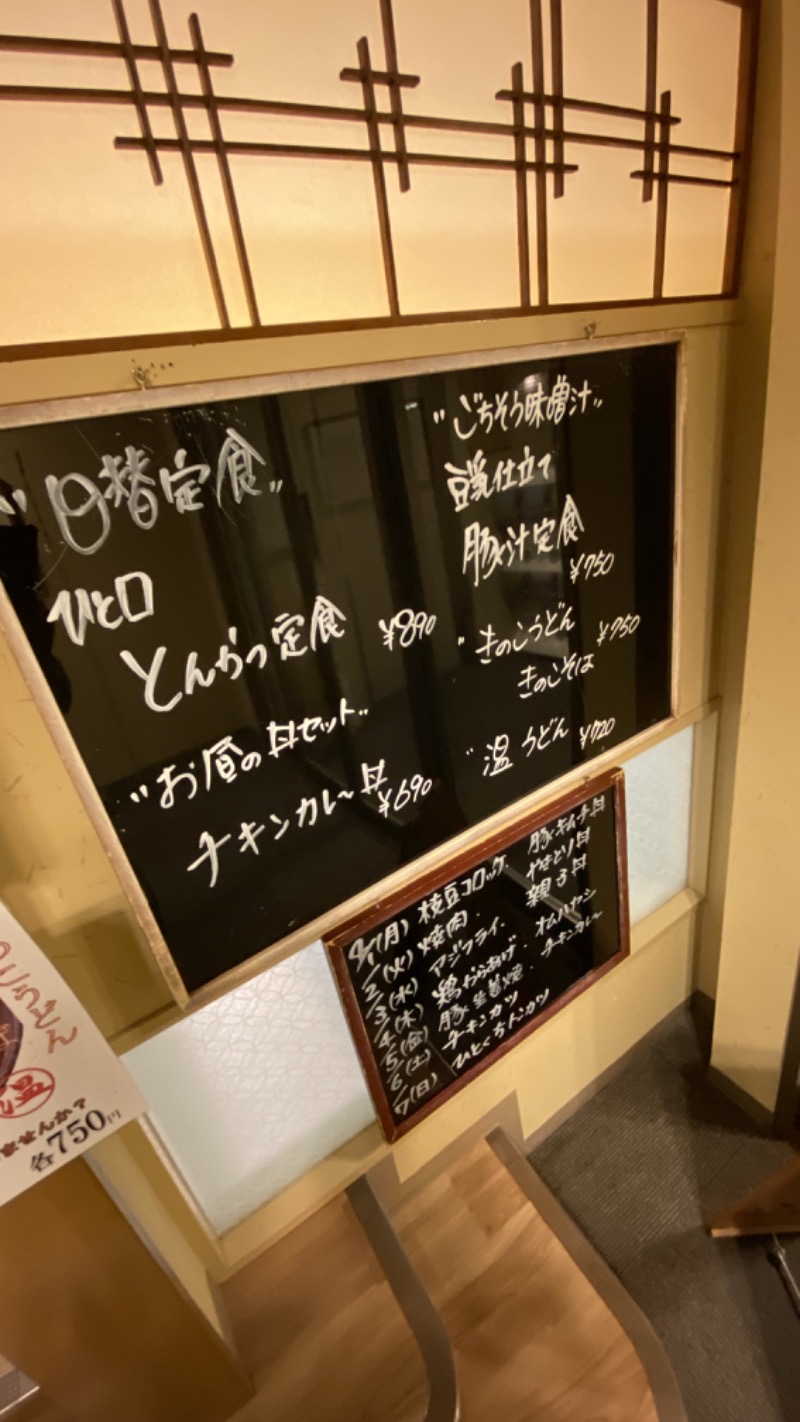 "日替定食"
ひと口
とんかつ定食 ¥890
"お昼の丼セット"
チキンカレー丼
¥690
"ごちそう味噌汁"
豆乳仕立て
豚汁定食
¥750
"きのこうどん ¥750
きのこそば
"温うどん ¥720
(月) 枝豆コロッケ 豚キムチ丼
2(火) 焼肉 やきとり丼
3(水) アジフライ 親子丼
4(木) 鶏からあげ オムハヤシ
5(金) 豚生姜焼 チキンカレー
6(土) チキンカツ
7(日) ひとくちトンカツ
温
ませんか?
各750円